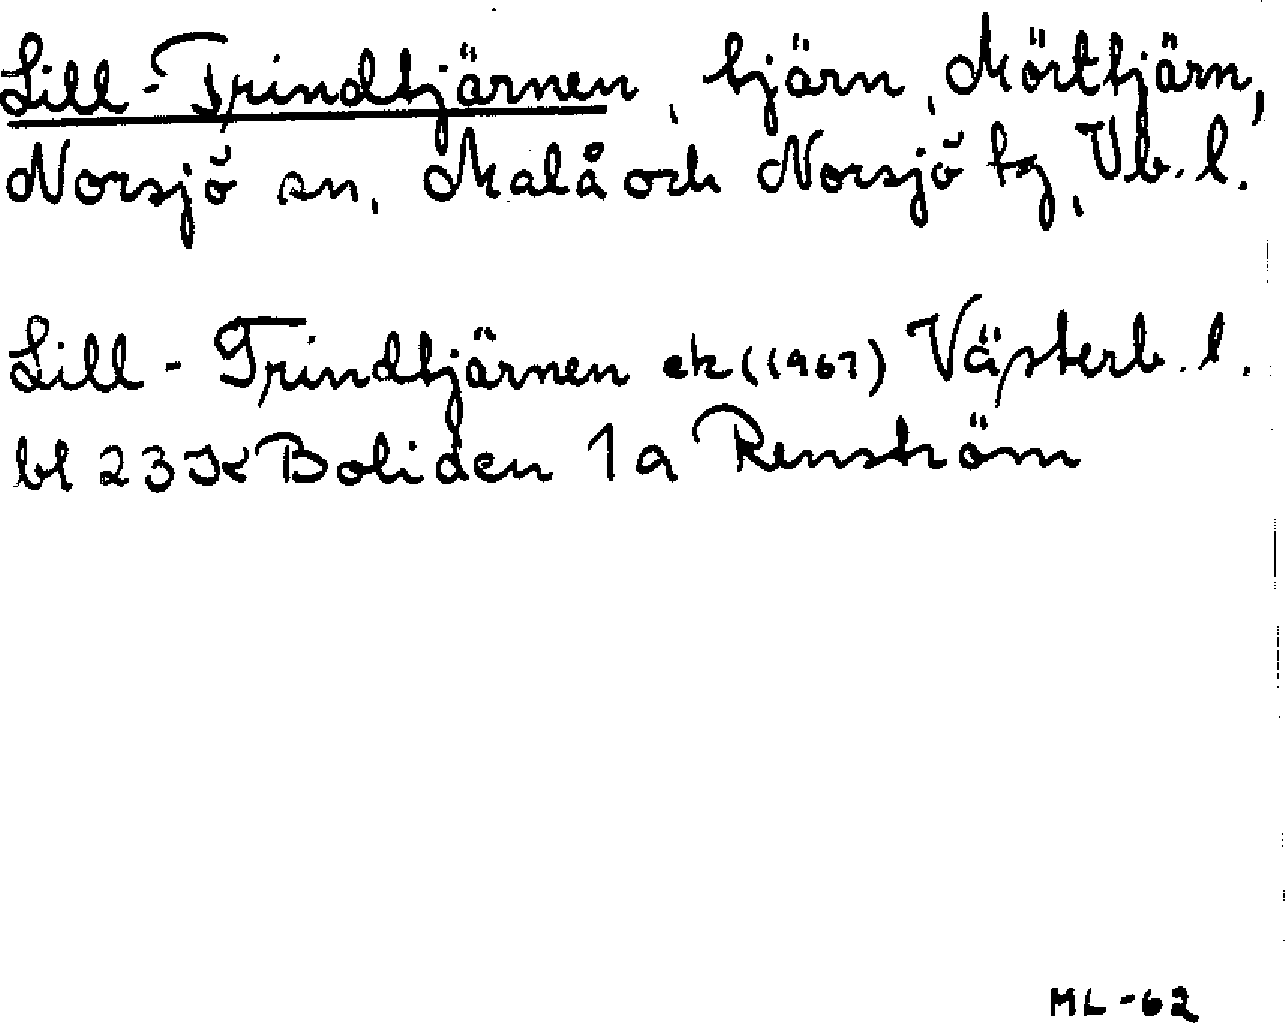 Lill-Trindtjärnen, tjärn, Mörttjärn,
Norsjö sn, Malå och Norsjö tg, Vb. l.
Lill-Trindtjärnen ek (1961) Västerb. l.
bl 23 K Boliden 1a Renström
ML-62